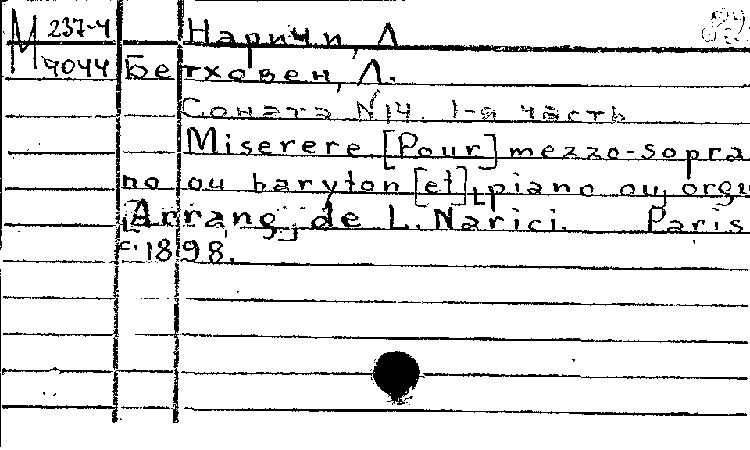 М 237-4 Наричи, Л
9044 Бетховен, Л.
Соната N14. 1-я часть
Miserere [Pour] mezzo-sopra
no ou baryton [et] piano ou orgu
[Arrang] de L. Narici. Paris
c. 1898.